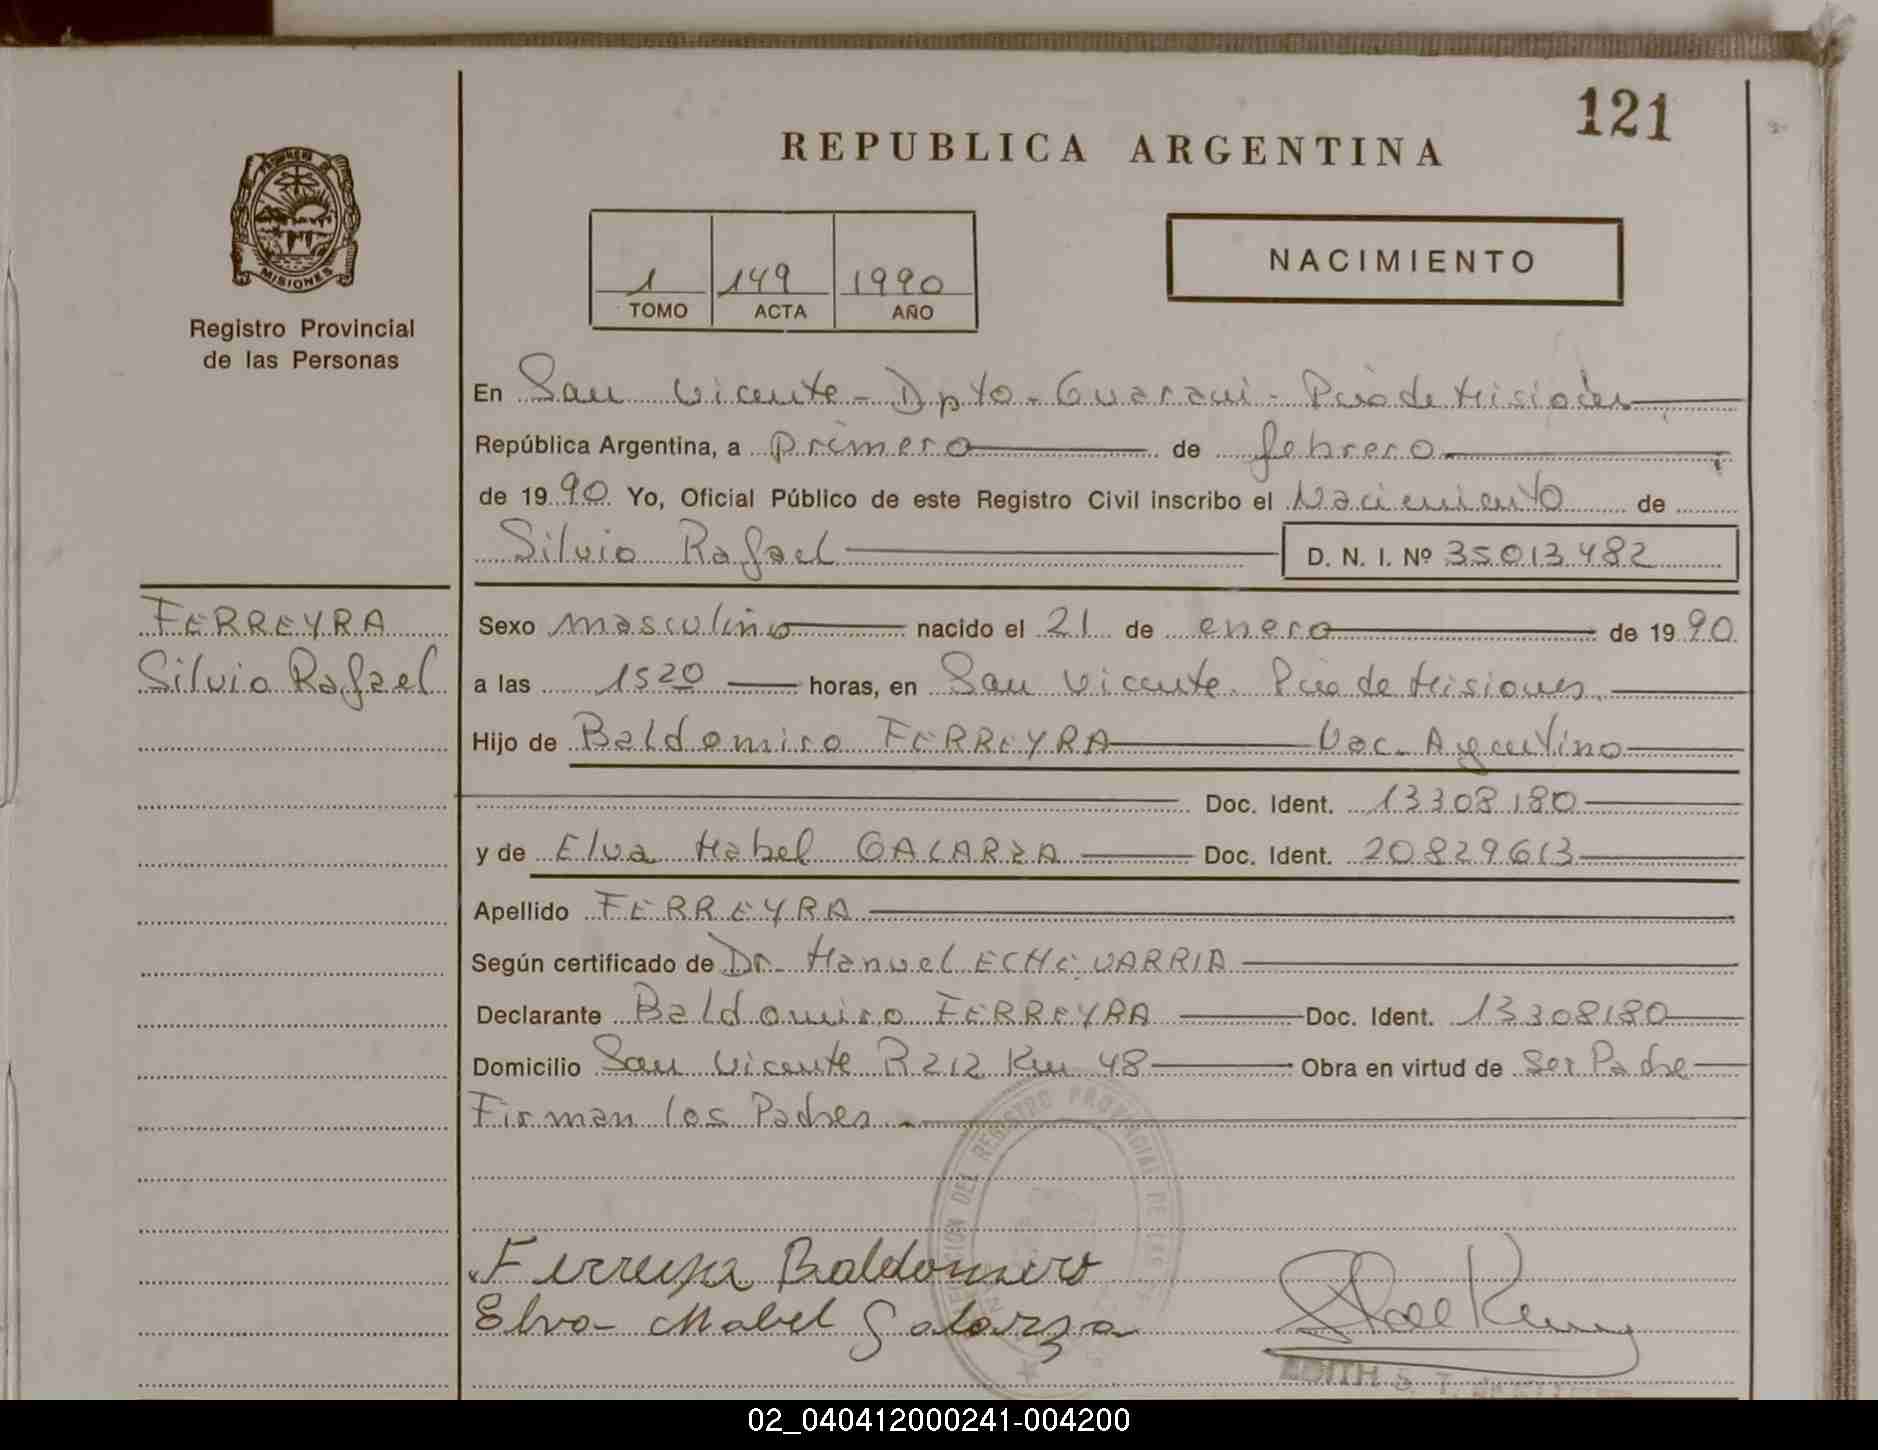 121
REPUBLICA ARGENTINA
MISIONES
Registro Provincial
de las Personas
1 149 1990
TOMO ACTA AÑO
NACIMIENTO
En San Vicente - Dpto - Guarani - Pcia de Misiones
República Argentina, a primero de febrero
de 1990 Yo, Oficial Público de este Registro Civil inscribo el Nacimiento de
Silvio Rafael D. N. I. Nº 35013482
FERREYRA
Silvio Rafael
Sexo masculino nacido el 21 de enero de 1990
a las 1520 horas, en San Vicente Pcia de Misiones
Hijo de Baldomiro FERREYRA Nac. Argentino
Doc. Ident. 13308180
y de Elva Mabel GALARZA Doc. Ident. 20829613
Apellido FERREYRA
Según certificado de Dr. Manuel ECHEVARRIA
Declarante Baldomiro FERREYRA Doc. Ident. 13308180
Domicilio San Vicente R 212 Km 48 Obra en virtud de ser Padre
Firman los Padres
DEL REGISTRO PROVINCIAL DE LAS
Ferreyra Baldomiro
Elva Mabel Galarza
EDITH
02_040412000241-004200